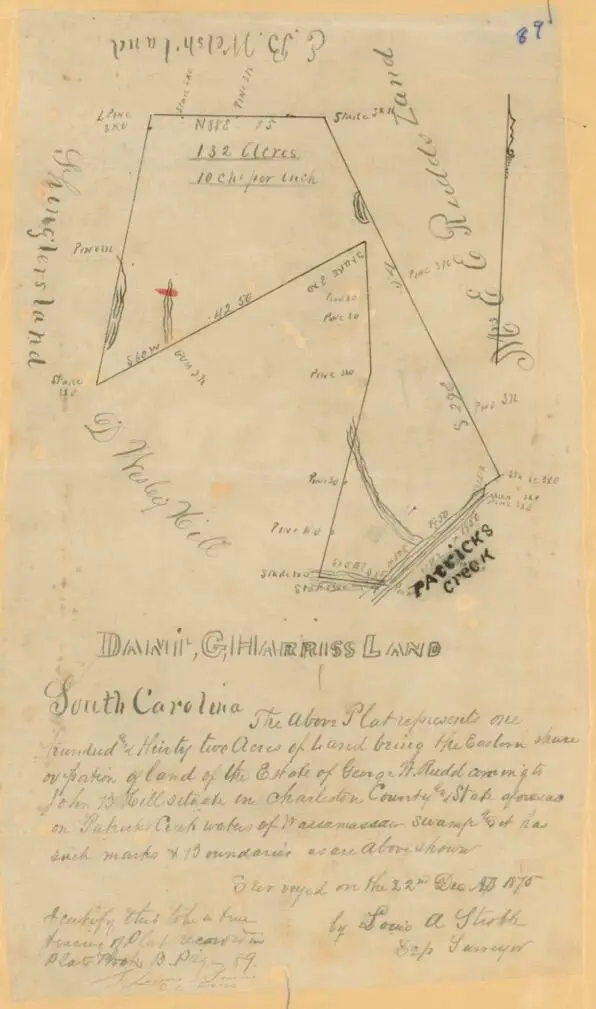 89
E. B. Welsh land
Stake 3x0
Pine 3x
L Pine
3x0
N 88 E 75
Stake 3x0
132 Acres
10 chs per inch
Shinglers land
Mrs E E Rudds Land
Pine 3x
Stake 3x0
Pine 3x
Pine 30
Pine 30
S 60 W
42 50
Gum 3x
Stake
3x0
Pine 3x0
S 29 E
Pine 3x
D Wesley Hill
Pine 30
Stake 3x0
Pine 3x0
Pine
Stake 3x0
Patricks
Creek
Dan'l, G, Harriss Land
South Carolina The Above Plat represents one
hundred & Thirty two Acres of Land being the Eastern share
or portion of land of the Estate of George W. Rudd coming to
John B Hill situate in Charleston County & State aforesaid
on Patricks Creek waters of Wassamassaw Swamp & it has
such marks & Boundaries as are Above shown
Surveyed on the 22nd Dec AD 1875
by Louis A Stroble
Dep Surveyor
I certify this to be a true
tracing of Plat recorded in
Plat Book B. Page 89.